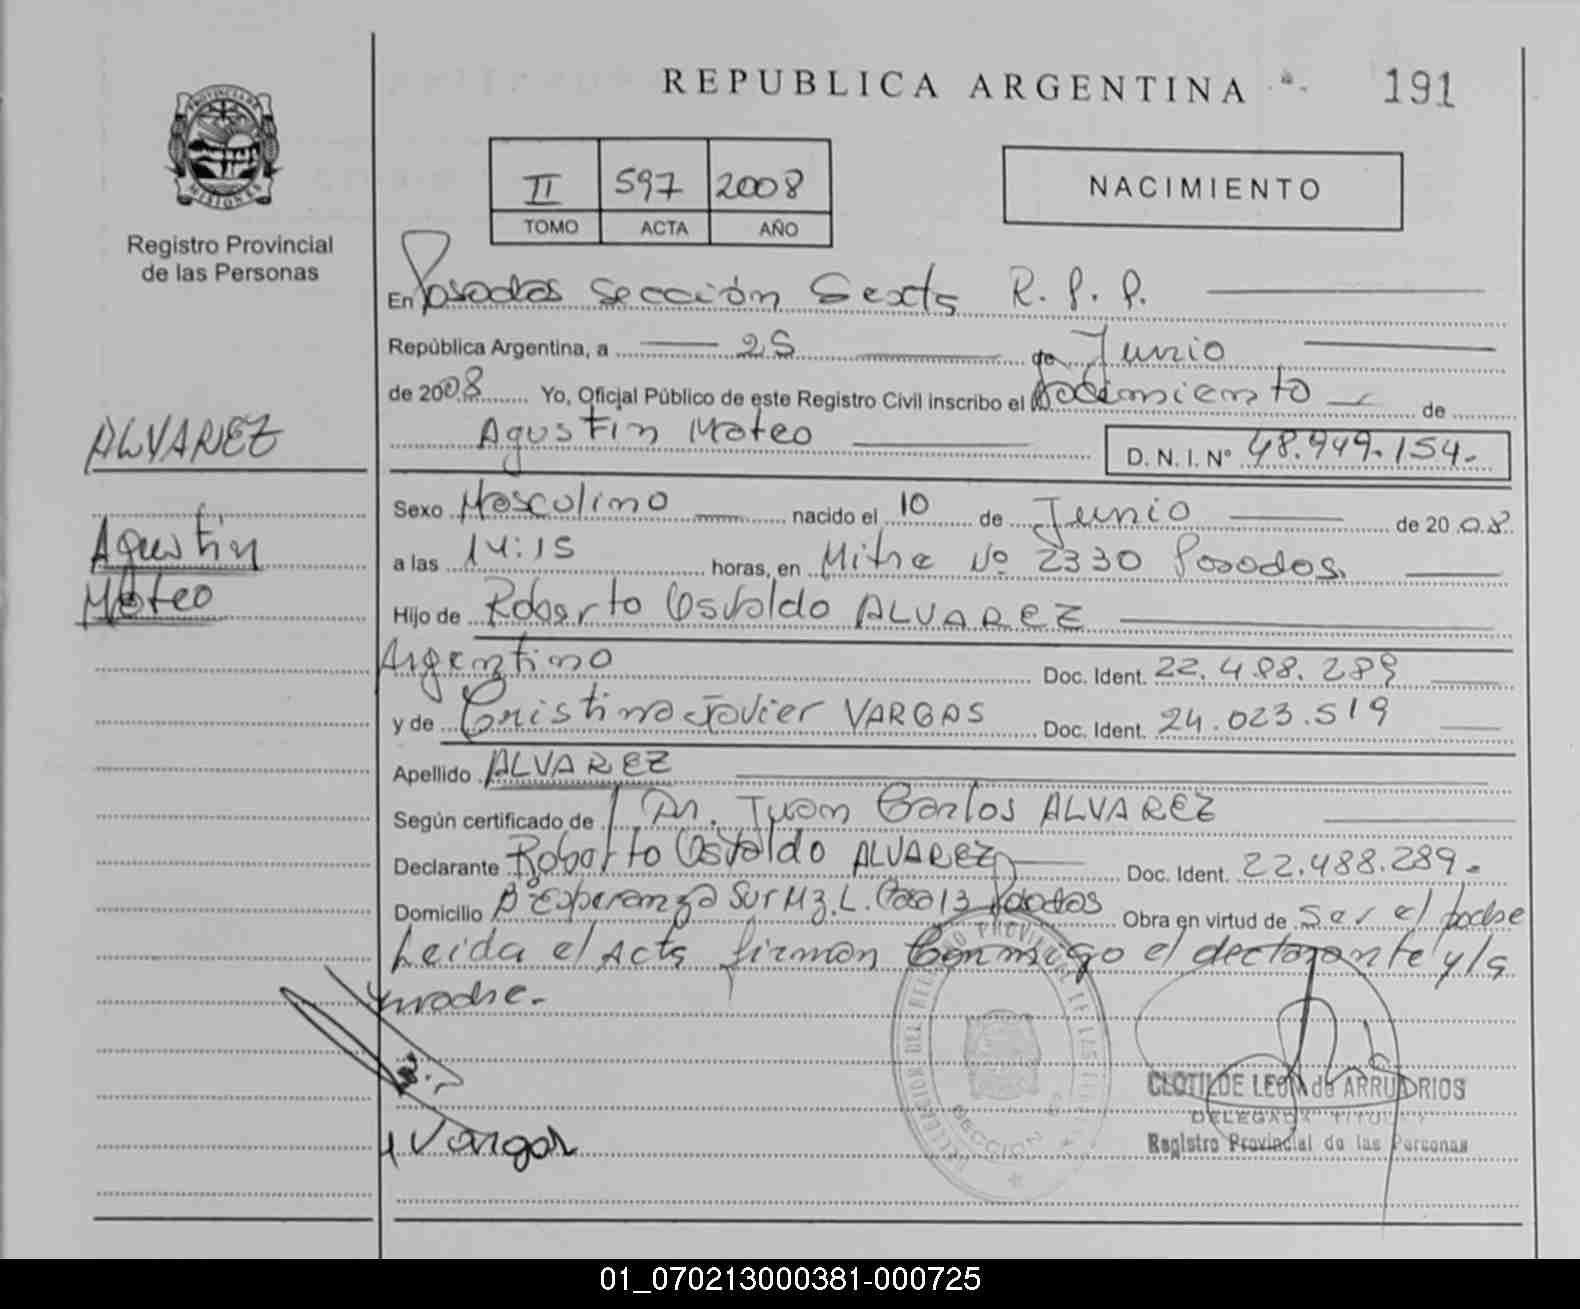 REPUBLICA ARGENTINA
191
PROVINCIA DE MISIONES
Registro Provincial
de las Personas
II 597 2008
TOMO ACTA AÑO
NACIMIENTO
En Posadas Sección Sexta R. P. P.
República Argentina, a 25 de Junio
de 2008 Yo, Oficial Público de este Registro Civil inscribo el Nacimiento de
Agustin Mateo D. N. I. Nº 48.949.154.-
ALVAREZ
Agustin
Mateo
Sexo Masculino nacido el 10 de Junio de 2008.
a las 14:15 horas, en Mitre Nº 2330 Posadas.
Hijo de Roberto Osvaldo ALVAREZ
Argentino Doc. Ident. 22.488.289
y de Cristina Javier VARGAS Doc. Ident. 24.023.519
Apellido ALVAREZ
Según certificado de Dr. Juan Carlos ALVAREZ
Declarante Roberto Osvaldo ALVAREZ Doc. Ident. 22.488.289.-
Domicilio Bº Esperanza Sur Mz. L. Casa 13 Posadas Obra en virtud de ser el padre
Leida el Acta firman Conmigo el declarante y la
madre.-
Vargas
SECCION
CLOTILDE LEON de ARRUDRIOS
DELEGADA TITULAR
Registro Provincial de las Personas
01_070213000381-000725